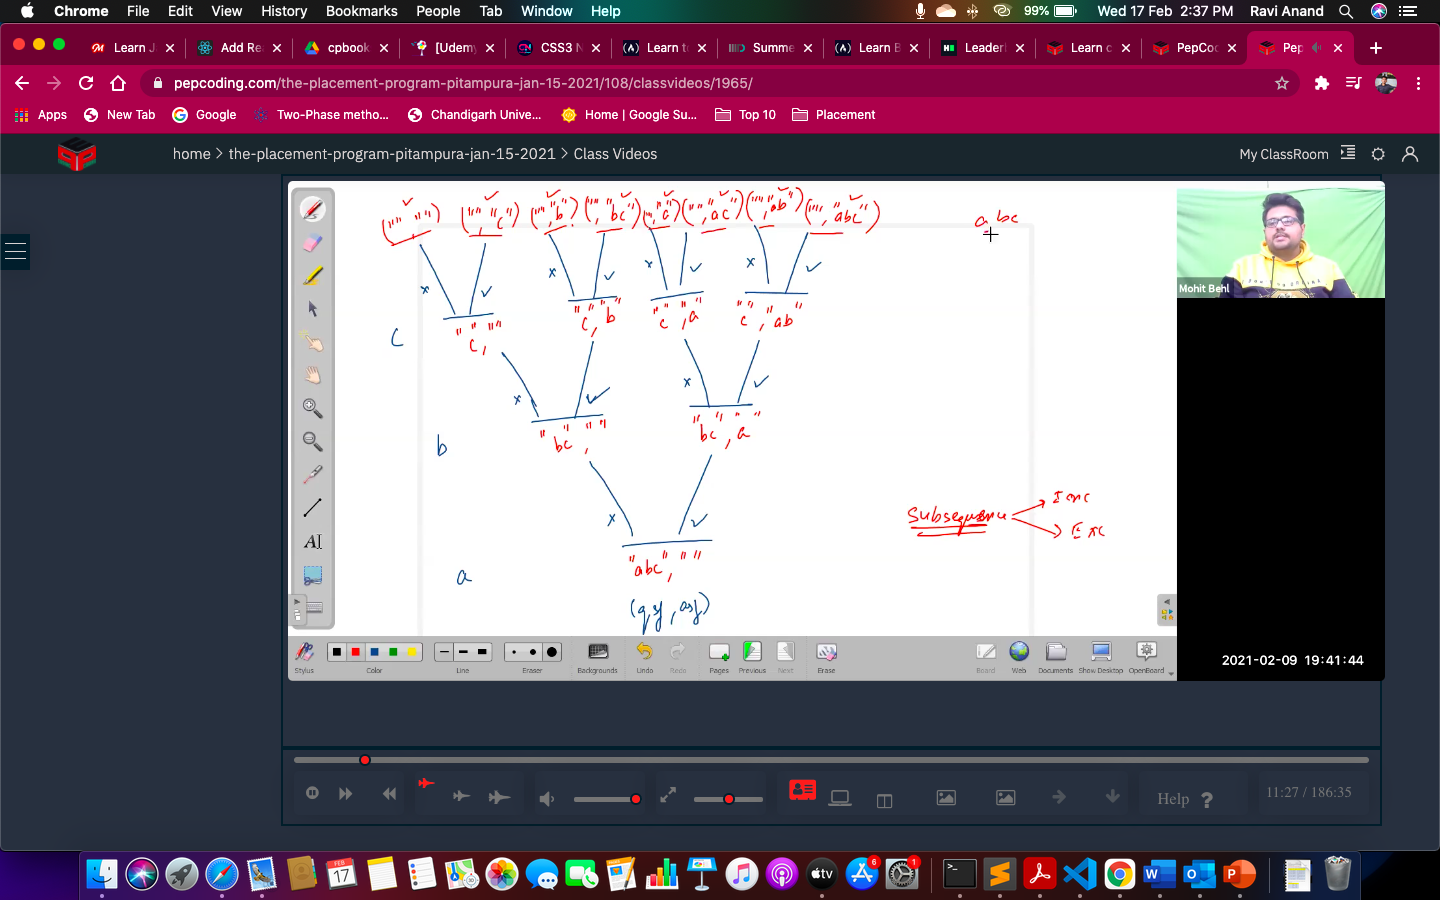 Chrome File Edit View History Bookmarks People Tab Window Help 99% Wed 17 Feb 2:37 PM Ravi Anand
Learn J Add Re cpbook [Udemy CSS3 N Learn to Summe Learn B Leaderl Learn c PepCoc Pep
pepcoding.com/the-placement-program-pitampura-jan-15-2021/108/classvideos/1965/
Apps New Tab Google Two-Phase metho... Chandigarh Unive... Home | Google Su... Top 10 Placement
home > the-placement-program-pitampura-jan-15-2021 > Class Videos My ClassRoom
("", "") ("", "c") ("", "b") ("", "bc") ("", "a") ("", "ac") ("", "ab") ("", "abc")
abc
Mohit Behl
"c", "" "c", "b" "c", "a" "c", "ab"
c
"bc", "" "bc", "a"
b
Subsequence Inc
Exc
"abc", ""
a
(qsf, asf)
Stylus Color Line Eraser Backgrounds Undo Redo Pages Previous Next Erase Board Web Documents Show Desktop OpenBoard
2021-02-09 19:41:44
Help ? 11:27 / 186:35
FEB
17
tv
6
1